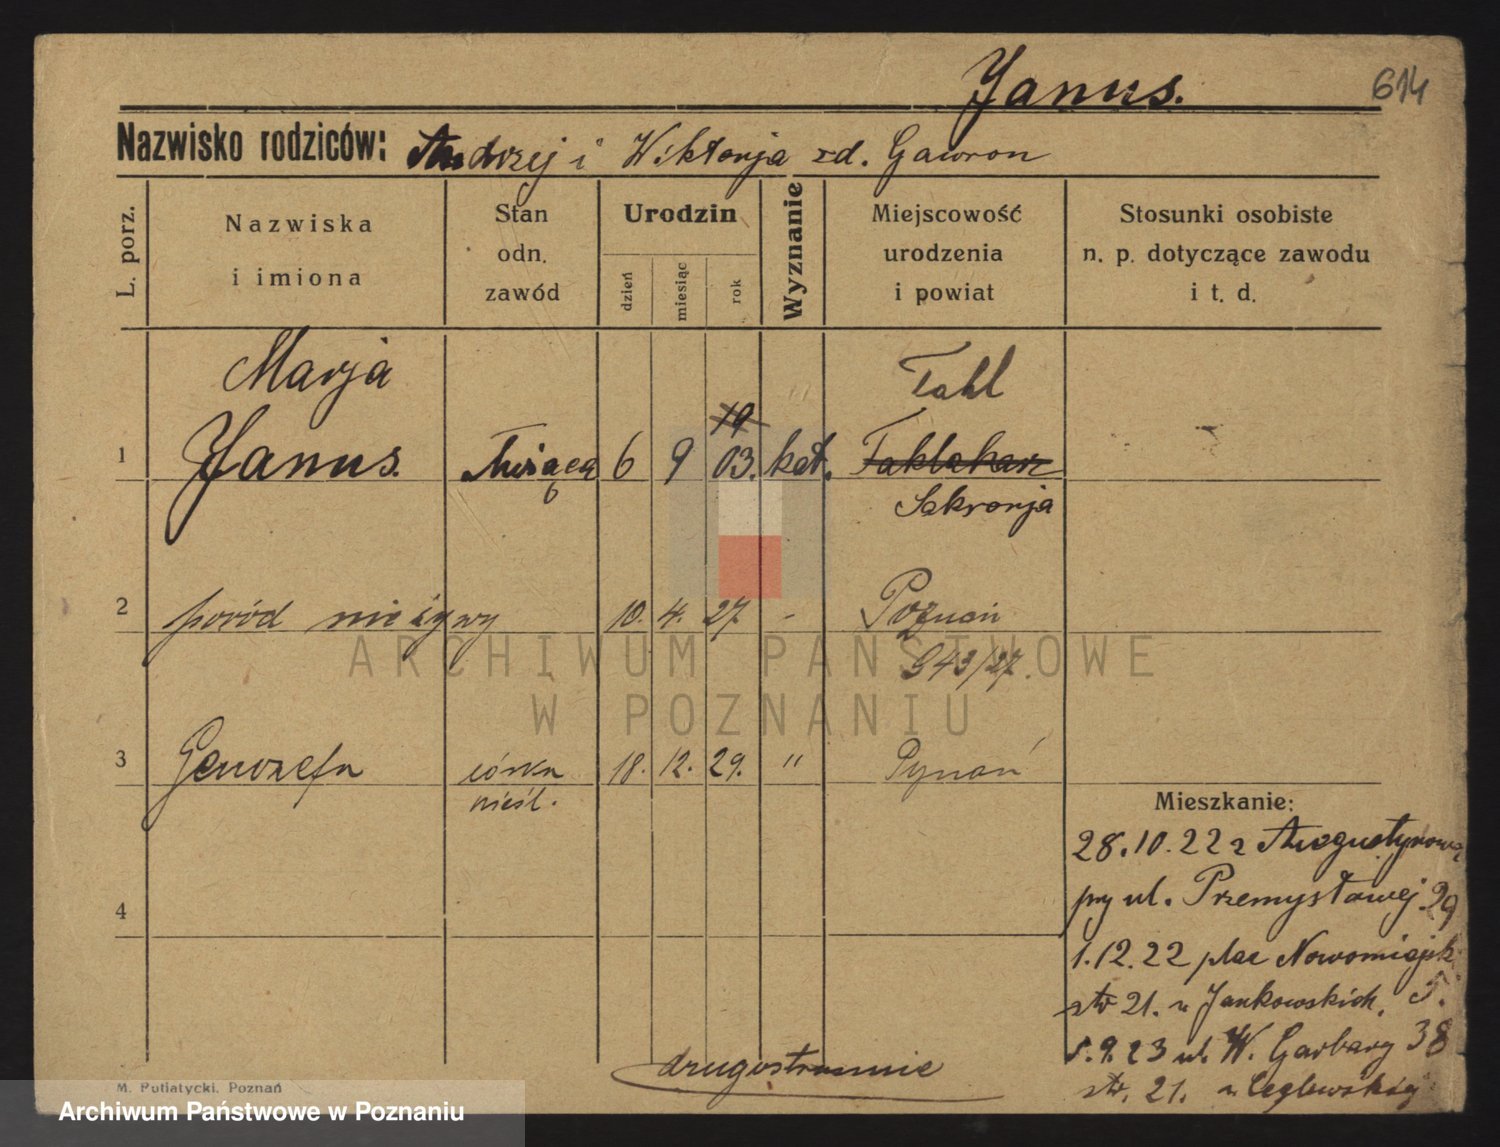 Janus. 614
Nazwisko rodziców: Andrzej i Wiktorja zd. Gawron
L. porz.
Nazwiska
i imiona
Stan
odn.
zawód
Urodzin
dzień
miesiąc
rok
Wyznanie
Miejscowość
urodzenia
i powiat
Stosunki osobiste
n. p. dotyczące zawodu
i t. d.
Marja Fahl
19
1 Janus. służąca 6 9 03. kat.
Saksonja
2 poród nieżywy 10. 4. 27. - Poznań
943/27.
3 Genozefa córka 18. 12. 29. " Poznań
nieśl.
Mieszkanie:
28.10.22 z Augustynowa
przy ul. Przemysławej 29
4
1.12.22 plac Nowomiejsk
str 21. u Jankowskich. 5.
5.9.23 ul. W. Garbary 38
drugostronnie
str. 21. u Ceglewskiej
M. Putiatycki, Poznań
ARCHIWUM PAŃSTWOWE
W POZNANIU
Archiwum Państwowe w Poznaniu